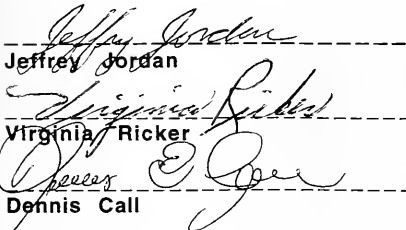 Jeffry Jordan
Jeffrey Jordan
Virginia Ricker
Virginia Ricker
Dennis Call